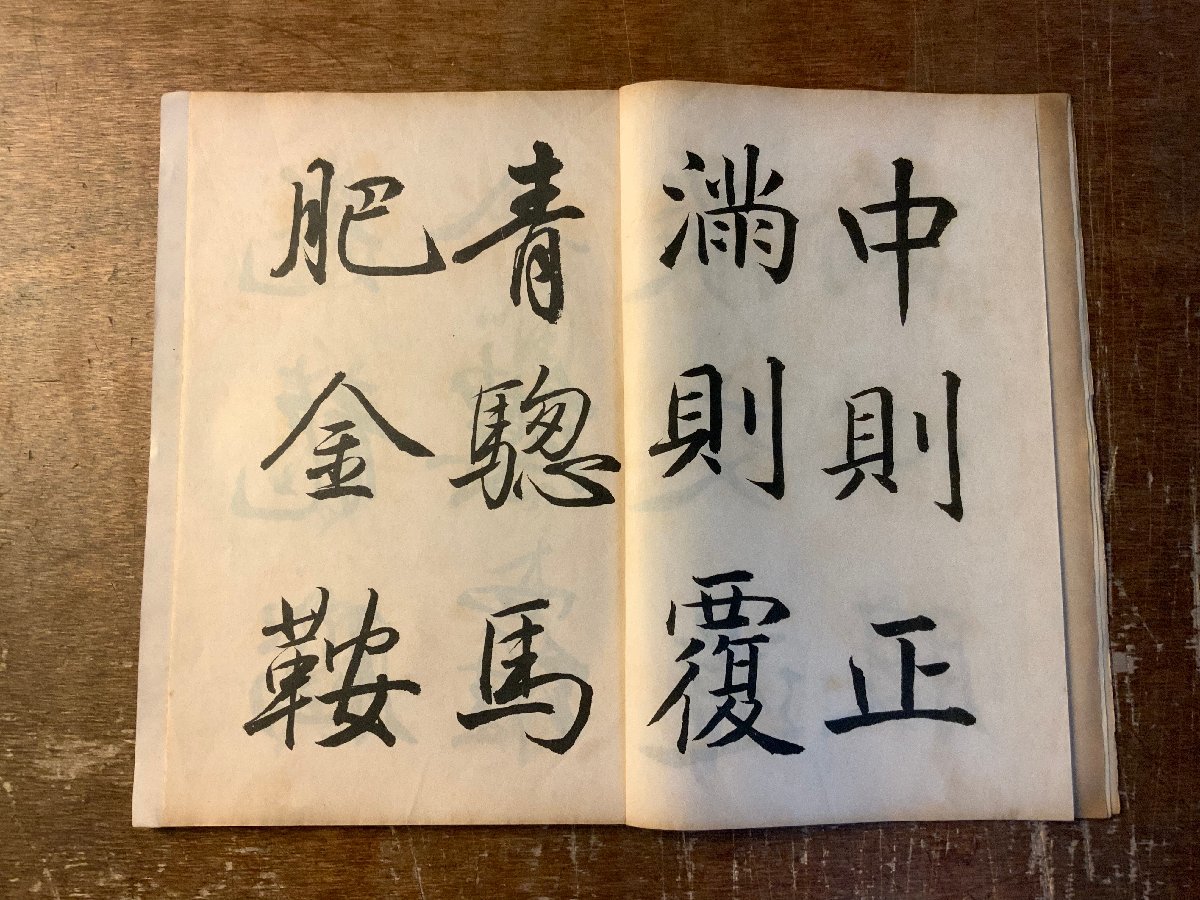 中則正
滿則覆
青驄馬
肥金鞍